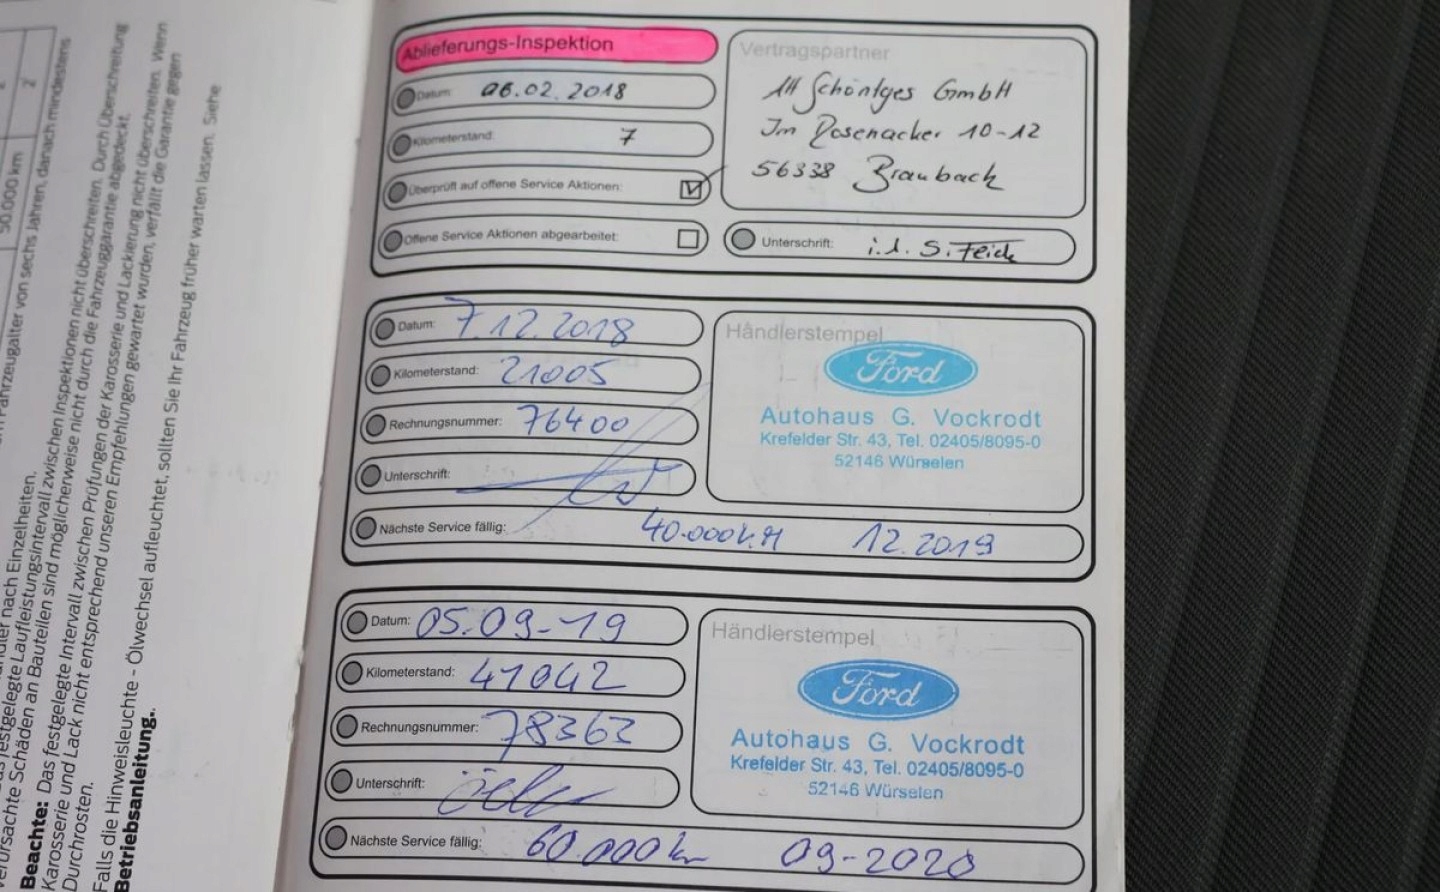 2
50.000 km
Fahrzeugalter von sechs Jahren, danach mindestens
nach Einzelheiten.
festgelegte Laufleistungsintervall zwischen Inspektionen nicht überschreiten. Durch Überschreitung
verursachte Schäden an Bauteilen sind möglicherweise nicht durch die Fahrzeuggarantie abgedeckt.
Beachte: Das festgelegte Intervall zwischen Prüfungen der Karosserie und Lackierung nicht überschreiten. Wenn
Karosserie und Lack nicht entsprechend unseren Empfehlungen gewartet wurden, verfällt die Garantie gegen
Durchrosten.
Falls die Hinweisleuchte - Ölwechsel aufleuchtet, sollten Sie Ihr Fahrzeug früher warten lassen. Siehe
Betriebsanleitung.
Ablieferungs-Inspektion
Datum: 06.02.2018
Kilometerstand: 7
Überprüft auf offene Service Aktionen:
Offene Service Aktionen abgearbeitet:
Vertragspartner
Schöntges GmbH
Im Rosenacker 10-12
56338 Braubach
Unterschrift:
Datum: 7.12.2018
Kilometerstand: 21005
Rechnungsnummer: 76400
Unterschrift:
Nächste Service fällig: 40.000KM 12.2019
Händlerstempel
Ford
Autohaus G. Vockrodt
Krefelder Str. 43, Tel. 02405/8095-0
52146 Würselen
Datum: 05.09-19
Kilometerstand: 41042
Rechnungsnummer: 78363
Unterschrift:
Nächste Service fällig: 60.000 km 09-2020
Händlerstempel
Ford
Autohaus G. Vockrodt
Krefelder Str. 43, Tel. 02405/8095-0
52146 Würselen